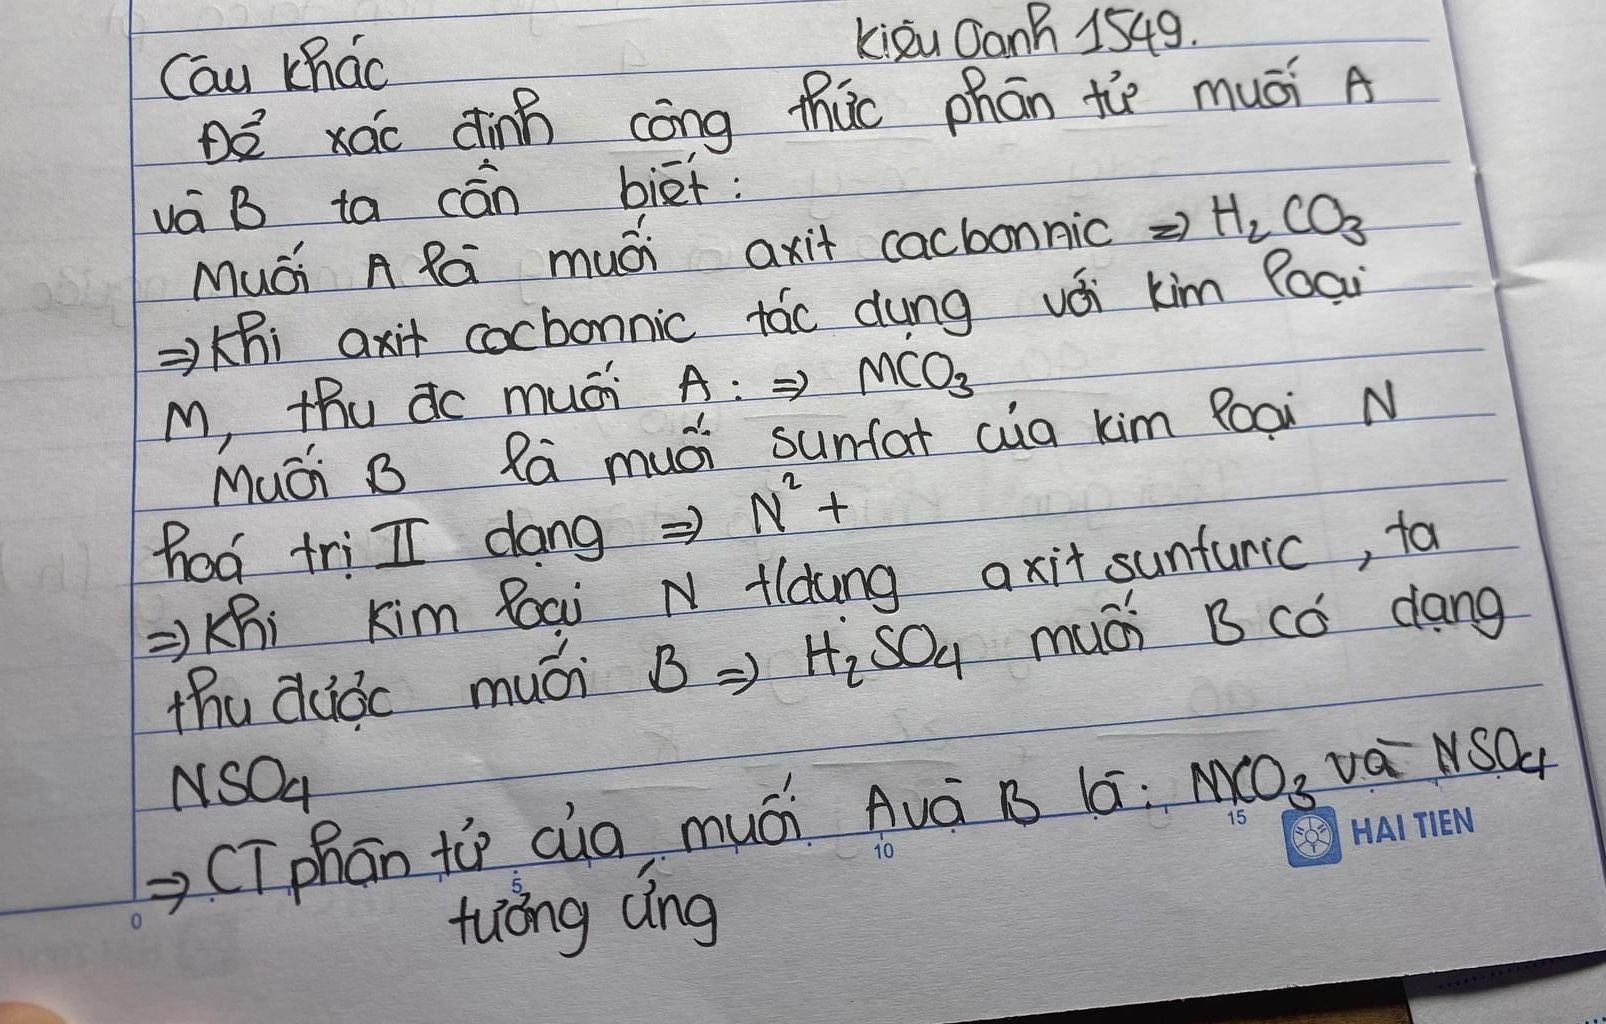 Kiều Oanh 1549.
Câu khác
Để xác định công thức phân tử muối A
và B ta cần biết:
Muối A là muối axit cacbonnic => H2CO3
=> Khi axit cacbonnic tác dụng với kim loại
M, thu đc muối A: => MCO3
Muối B là muối sunfat của kim loại N
hoá trị II dạng => N²+
=> Khi kim loại N t/dụng axit sunfuric, ta
thu được muối B => H2SO4 muối B có dạng
NSO4
=> CT phân tử của muối A và B là: MCO3 và NSO4
tương ứng
0 5 10 15
HAI TIEN